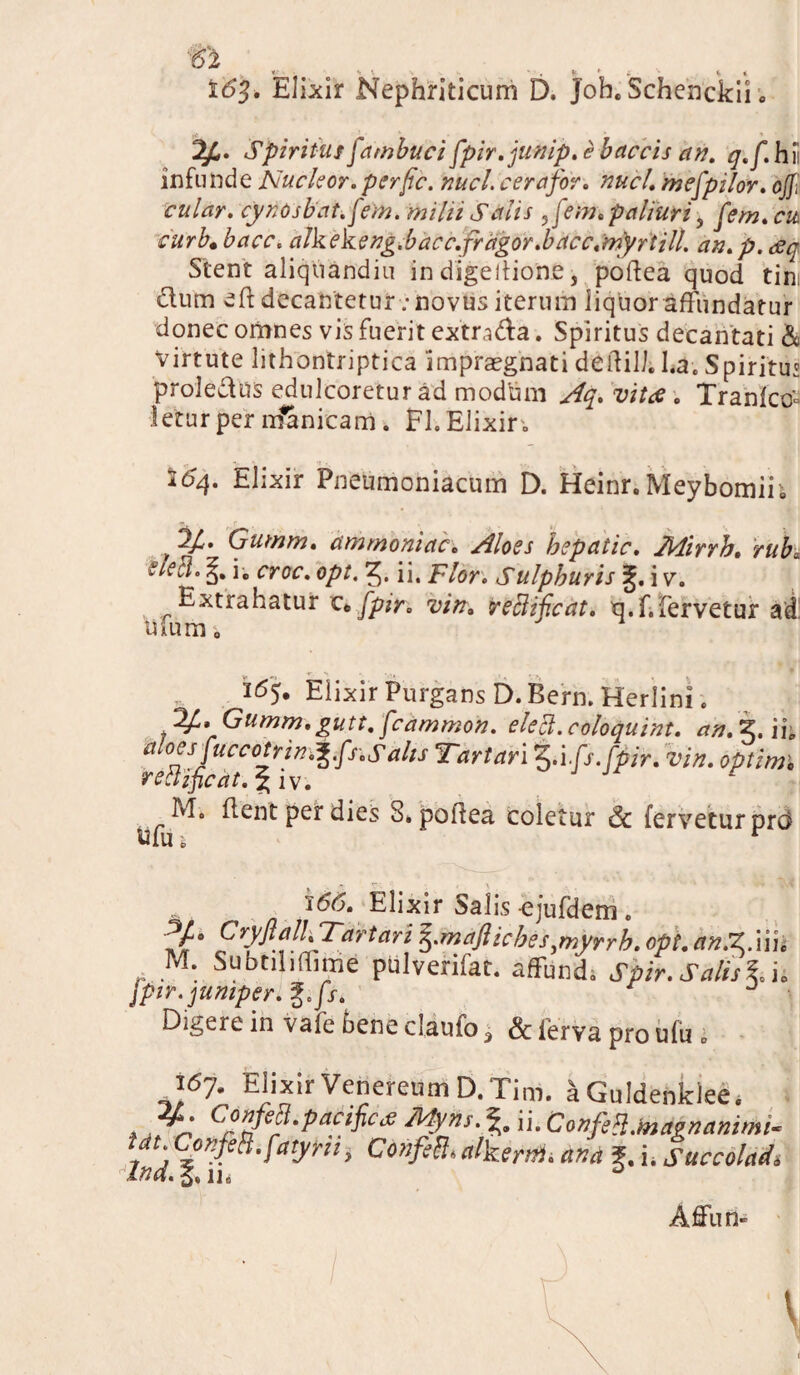 62
163. Elixir Nephriticum D. Joh. Schenckii.
♃. Spiritus sambuci spir. junip. è baccis an. q. ſ. hii
infunde Nucleor. perſic. nucl. ceraſor. nucl. meſpilor. oſſi
cular. cynosbat. ſem. milii Salis, ſem. paliuri, ſem. cu
curb. bacc. alkekeng. bacc. fragor. bacc. myrtill. an. p. æq
Stent aliquandiu in digeſtione, poſtea quod tin
ctum eſt decantetur: novus iterum liquor affundatur
donec omnes vis fuerit extracta. Spiritus decantati &
virtute lithontriptica imprægnati deſtill. l.a. Spiritus
prolectus edulcoretur ad modum Aq. vitæ. Tranſco-
letur per manicam. Fl. Elixir.
164. Elixir Pneumoniacum D. Heinr. Meybomii.
♃. Gumm. ammoniac. Aloes hepatic. Mirrh. rub.
elect. ℥. i. croc. opt. ʒ. ii. Flor. Sulphuris ℥. iv.
Extrahatur c. ſpir. vin. rectificat. q. ſ. ſervetur ad
uſum.
165. Elixir Purgans D. Bern. Herlini.
♃. Gumm. gutt. ſcammon. elect. coloquint. an. ʒ. ii.
aloes ſuccotrin. ℥. ſs. Salis Tartari ʒ. i. ſs. ſpir. vin. optim.
rectificat. ℥ iv.
M. ſtent per dies 8. poſtea coletur & ſervetur pro
uſu.
166. Elixir Salis ejuſdem.
♃. Cryſtall. Tartari ℥. maſtiches, myrrh. opt. an. ʒ. iii.
M. Subtiliſſime pulveriſat. affund. Spir. Salis ℥. i.
ſpir. juniper. ℥. ſs.
Digere in vaſe bene clauſo, & ſerva pro uſu.
167. Elixir Venereum D. Tim. à Guldenklee.
♃. Confect. pacificæ Myns. ℥. ii. Confect. magnanimi-
tat. Confect. ſatyrii, Confect. alkerm. ana ℥. i. Succolad.
Ind. ℥. ii.
Affun-